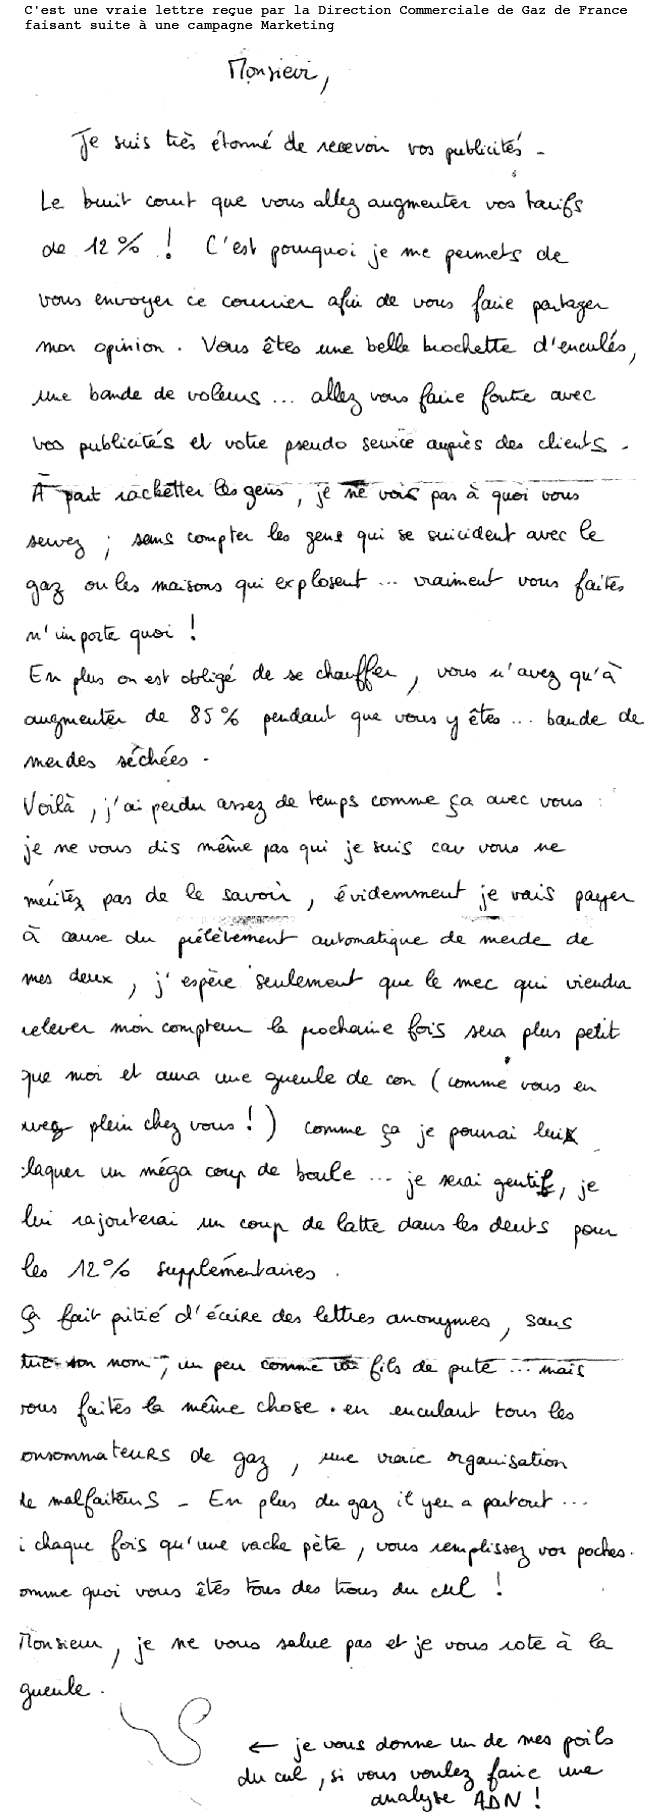 C'est une vraie lettre reçue par la Direction Commerciale de Gaz de France
faisant suite à une campagne Marketing
Monsieur,
Je suis très étonné de recevoir vos publicités -
Le bruit court que vous allez augmenter vos tarifs
de 12 % ! C'est pourquoi je me permets de
vous envoyer ce courrier afin de vous faire partager
mon opinion. Vous êtes une belle brochette d'enculés,
une bande de voleurs ... allez vous faire foutre avec
vos publicités et votre pseudo service auprès des clients.
À part racketter les gens, je ne vois pas à quoi vous
servez ; sans compter les gens qui se suicident avec le
gaz ou les maisons qui explosent ... vraiment vous faites
n'importe quoi !
En plus on est obligé de se chauffer, vous n'avez qu'à
augmenter de 85 % pendant que vous y êtes ... bande de
merdes séchées.
Voilà, j'ai perdu assez de temps comme ça avec vous :
je ne vous dis même pas qui je suis car vous ne
méritez pas de le savoir, évidemment je vais payer
à cause du prélèvement automatique de merde de
mes deux, j'espère seulement que le mec qui viendra
relever mon compteur la prochaine fois sera plus petit
que moi et aura une gueule de con (comme vous en
avez plein chez vous !) comme ça je pourrai lui
claquer un méga coup de boule ... je serai gentil, je
lui rajouterai un coup de latte dans les dents pour
les 12 % supplémentaires.
Ça fait pitié d'écrire des lettres anonymes, sans
son nom, un peu comme un fils de pute ... mais
vous faites la même chose en enculant tous les
onsommateurs de gaz, une vraie organisation
de malfaiteurs - En plus du gaz il y en a partout ...
à chaque fois qu'une vache pète, vous remplissez vos poches.
omme quoi vous êtes tous des trous du cul !
Monsieur, je ne vous salue pas et je vous rote à la
gueule.
← je vous donne un de mes poils
du cul, si vous voulez faire une
analyse ADN !